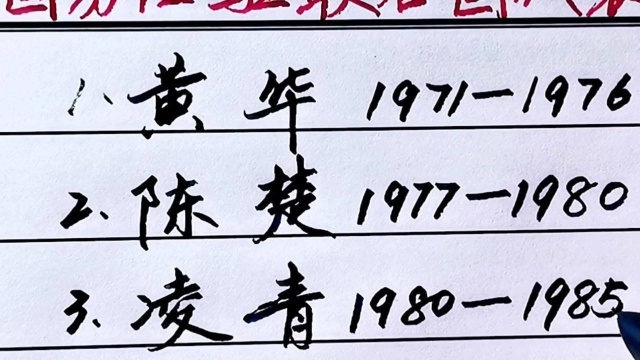 1. 黄华 1971—1976
2. 陈楚 1977—1980
3. 凌青 1980—1985